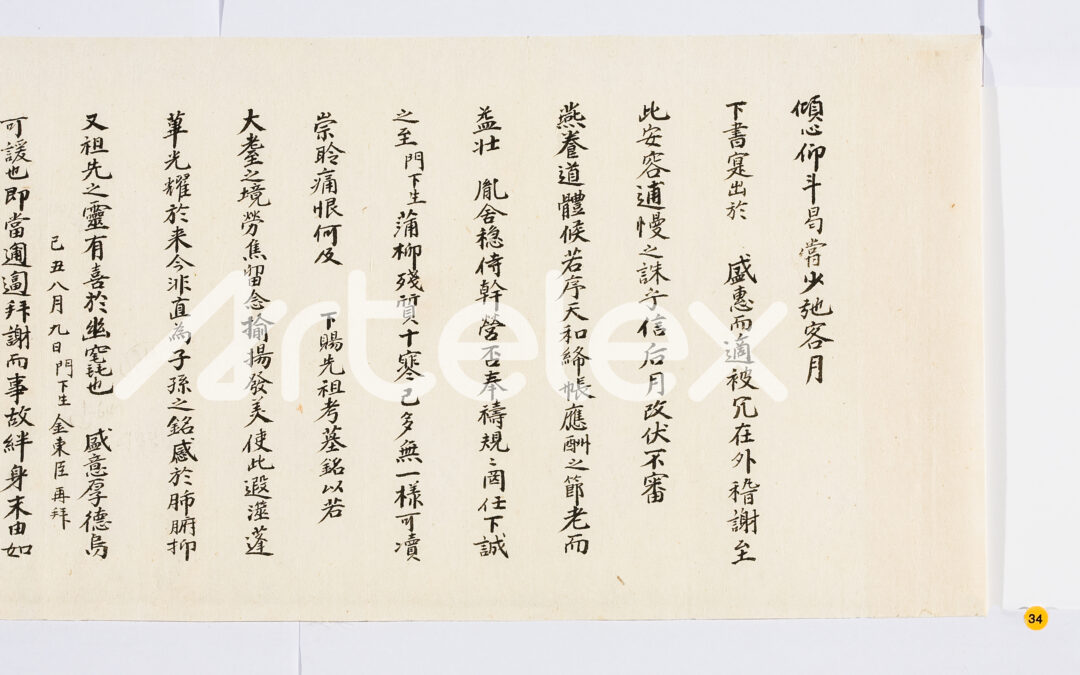 傾心仰斗曷嘗少弛客月
下書寔出於 盛惠而適被冗在外稽謝至
此安容逋慢之誅乎信后月改伏不審
燕養道體候若序天和絳帳應酬之節老而
益壯 胤舍穩侍幹營否奉禱規〻罔任下誠
之至門下生蒲柳殘質十寒已多無一樣可凟
崇聆痛恨何及 下賜先祖考墓銘以若
大耋之境勞焦留念揄揚發美使此遐澨蓬
蓽光耀於来今非直為子孫之銘感於肺腑抑
又祖先之靈有喜於幽窀也 盛意厚德烏
可諼也即當匍匐拜謝而事故絆身末由如
己丑八月九日門下生金東臣再拜
Artelex
34